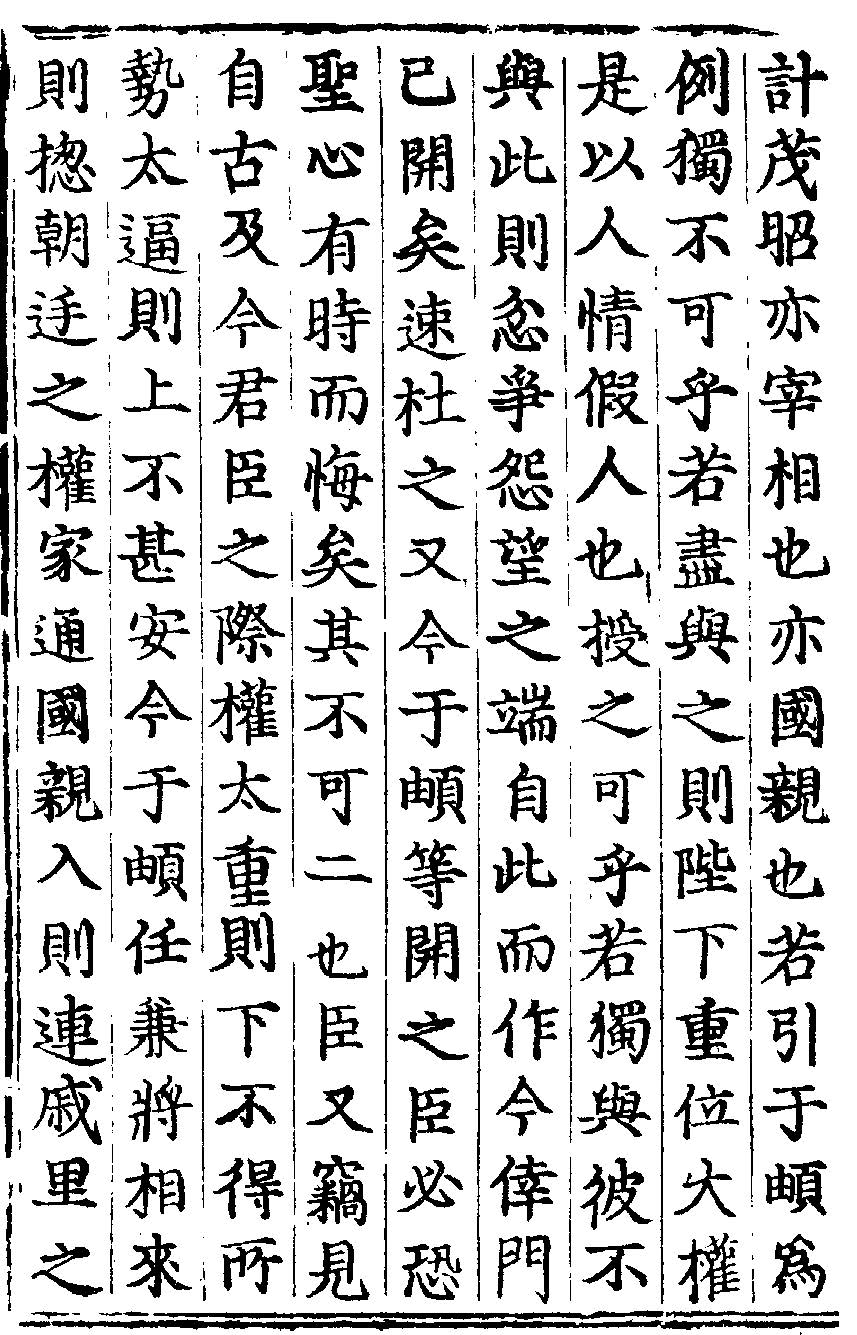 計茂昭亦宰相也亦國親也若引于頔爲
例獨不可乎若盡與之則陛下重位大權
是以人情假人也授之可乎若獨與彼不
與此則忿爭怨望之端自此而作今倖門
已開矣速杜之又今于頔等開之臣必恐
聖心有時而悔矣其不可二也臣又竊見
自古及今君臣之際權太重則下不得所
勢太逼則上不甚安今于頔任兼將相來
則揔朝廷之權家通國親入則連戚里之